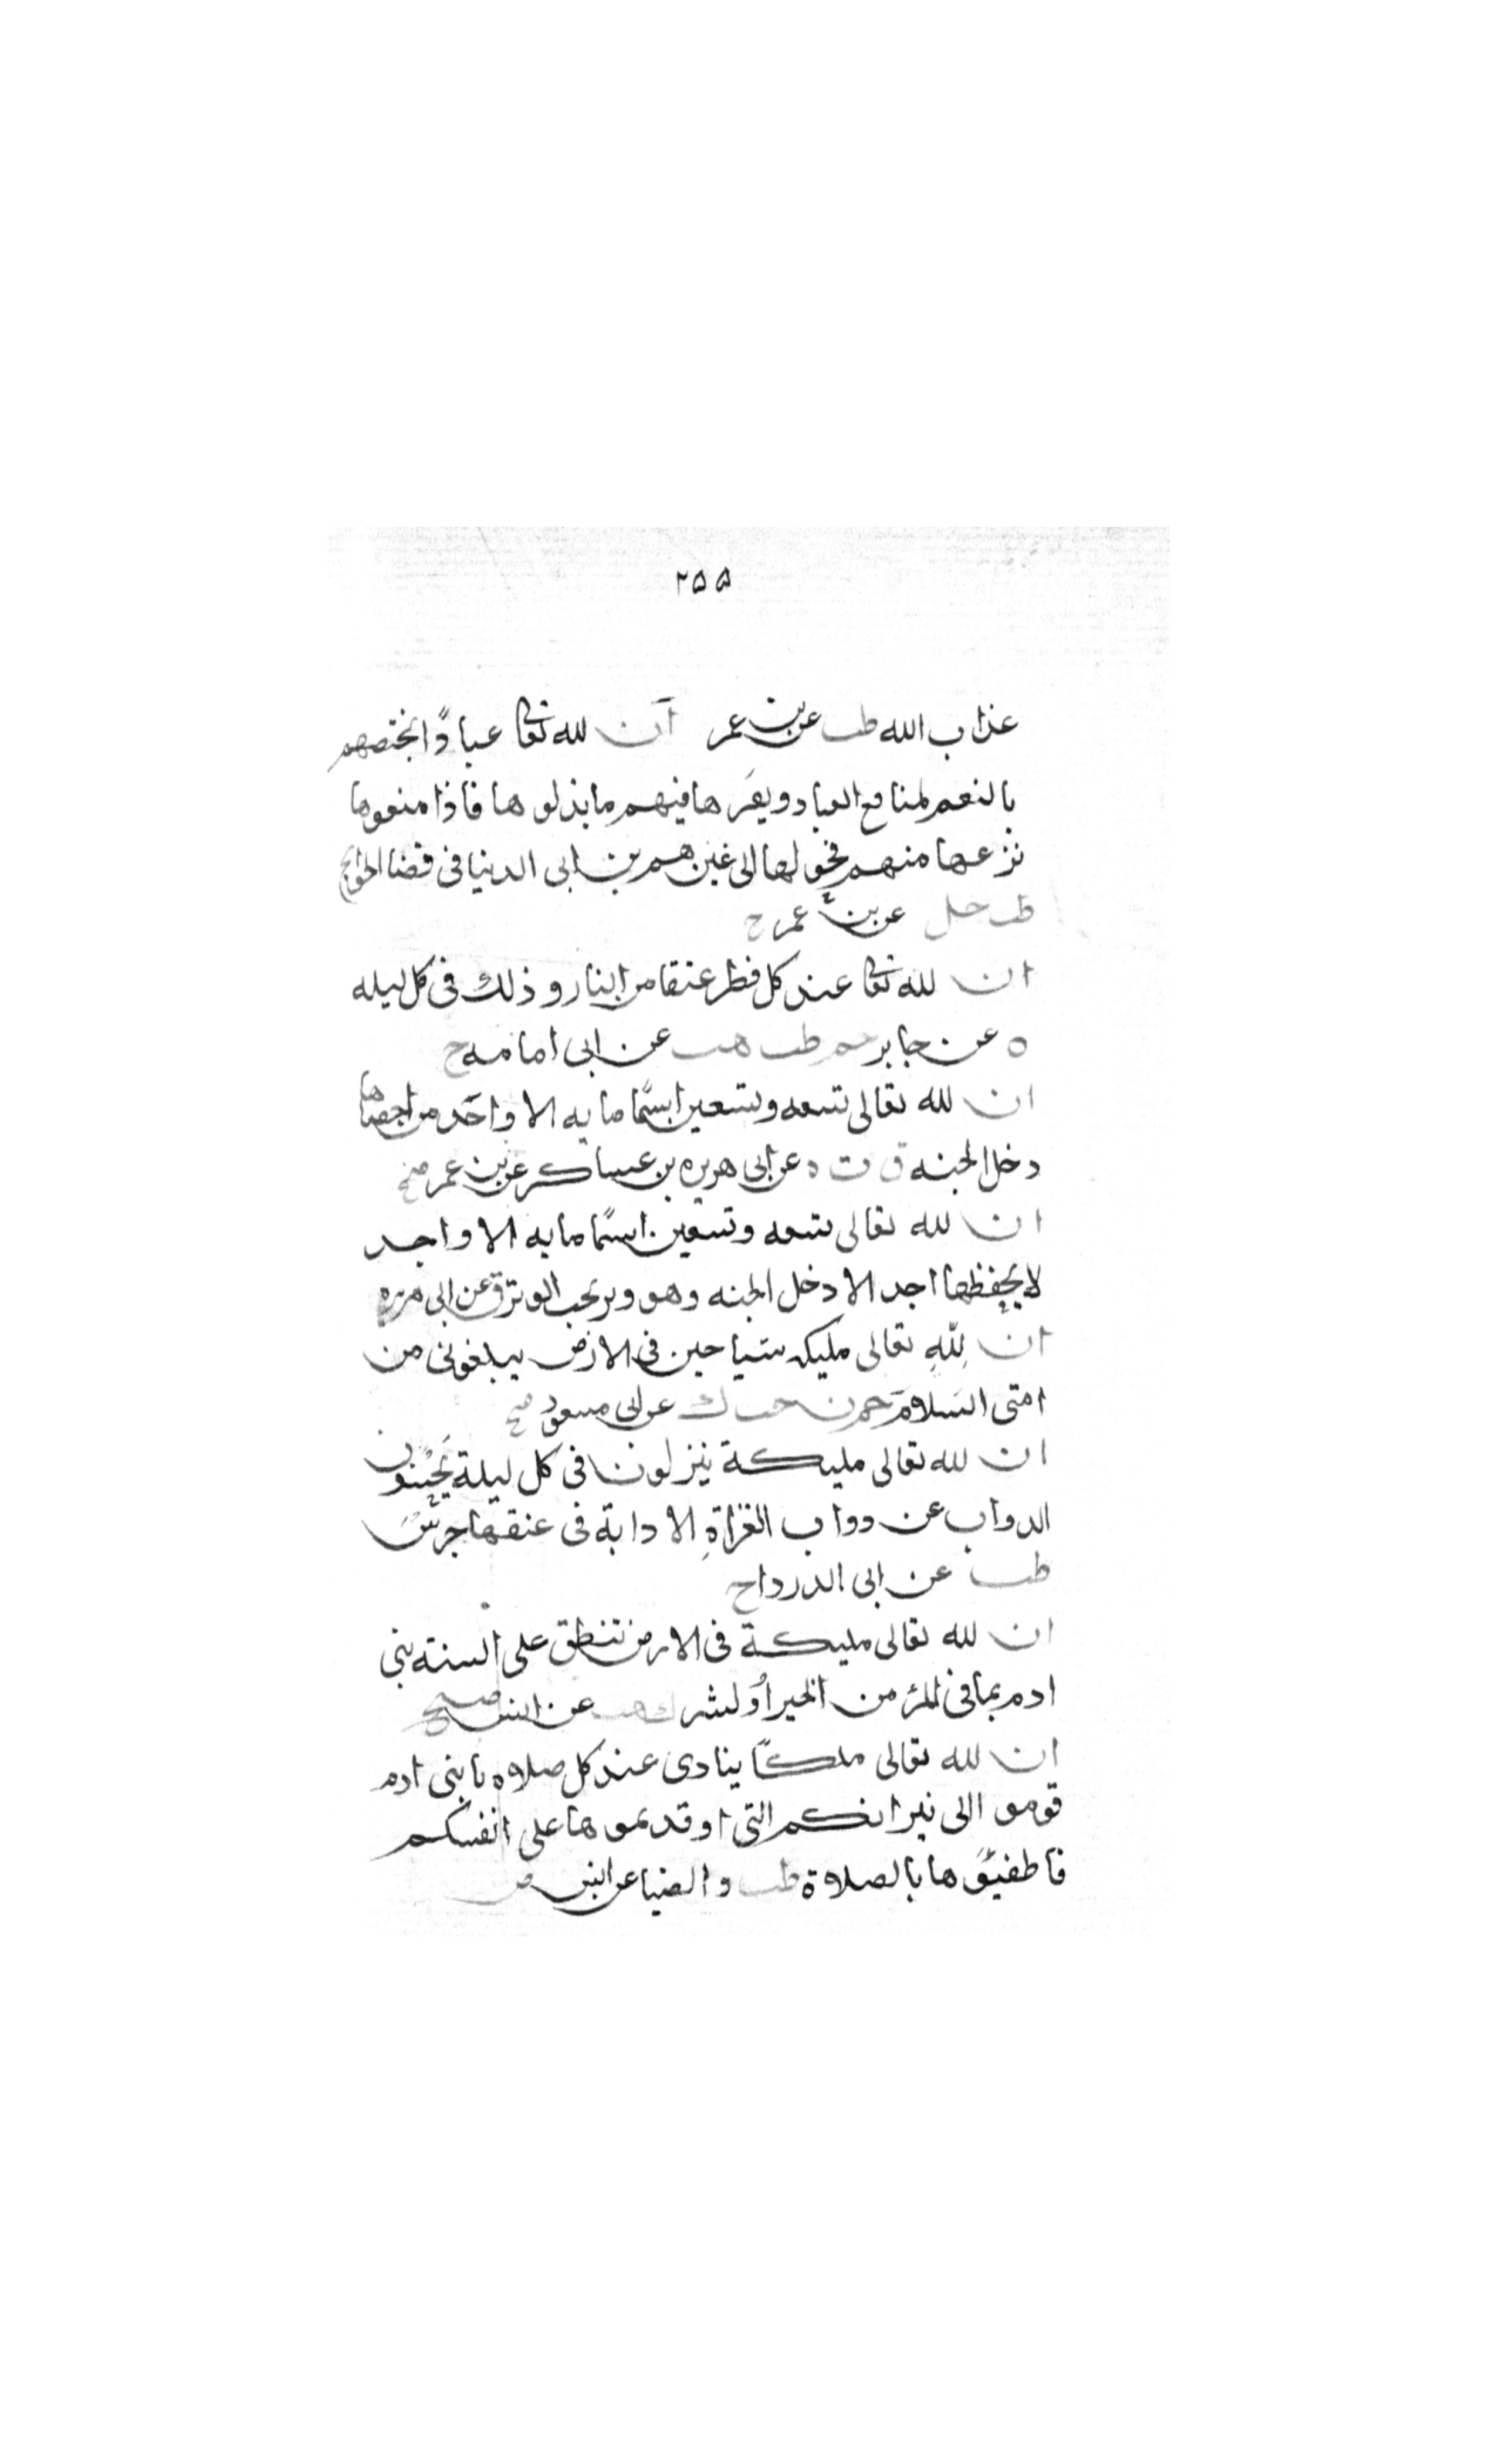 ٢٥٥
عذاب الله طب عن بن عمر ان لله تعا عبادًا يختصهم
بالنعم لمنافع العباد ويقرها فيهم ما بذلوها فاذا منعوها
نزعها منهم فحولها الى غيرهم بن ابى الدنيا فى قضا الحوايج
طب حل عن بن عمر ح
ان لله تعا عند كل فطر عتقا من النار وذلك فى كل ليله
ه عن جابر حم طب هب عن ابى امامه ح
ان لله تعالى تسعه وتسعين اسمًا مايه الا واحد من احصاها
دخل الجنه ق ت ه عن ابى هريره بن عساكر عن بن عمر صح
ان لله تعالى تسعه وتسعين اسمًا مايه الا واحد
لا يحفظها احد الا دخل الجنه وهو وتر يحب الوتر ق عن ابى هريره
ان لِلَّهِ تعالى مليكه سياحين فى الارض يبلغونى من
امتى السلامَ حم ن حب ك عن بن مسعود صح
ان لله تعالى مليكة ينزلون فى كل ليلة يَحُسّون
الدواب عن دواب الغزاةِ الا دابة فى عنقها جرسٌ
طب عن ابى الدردا ح
ان لله تعالى مليكة فى الارض تنطق على السنة بنى
ادم بما فى المرْ من الخير أولشر ك هب عن انس صحيح
ان لله تعالى ملكًا ينادى عند كل صلاه يا بنى ادم
قوموا الى نيرانكم التى اوقدتموها على انفسكم
فاطفيُوها بالصلاة طب والضيا عن انس ض